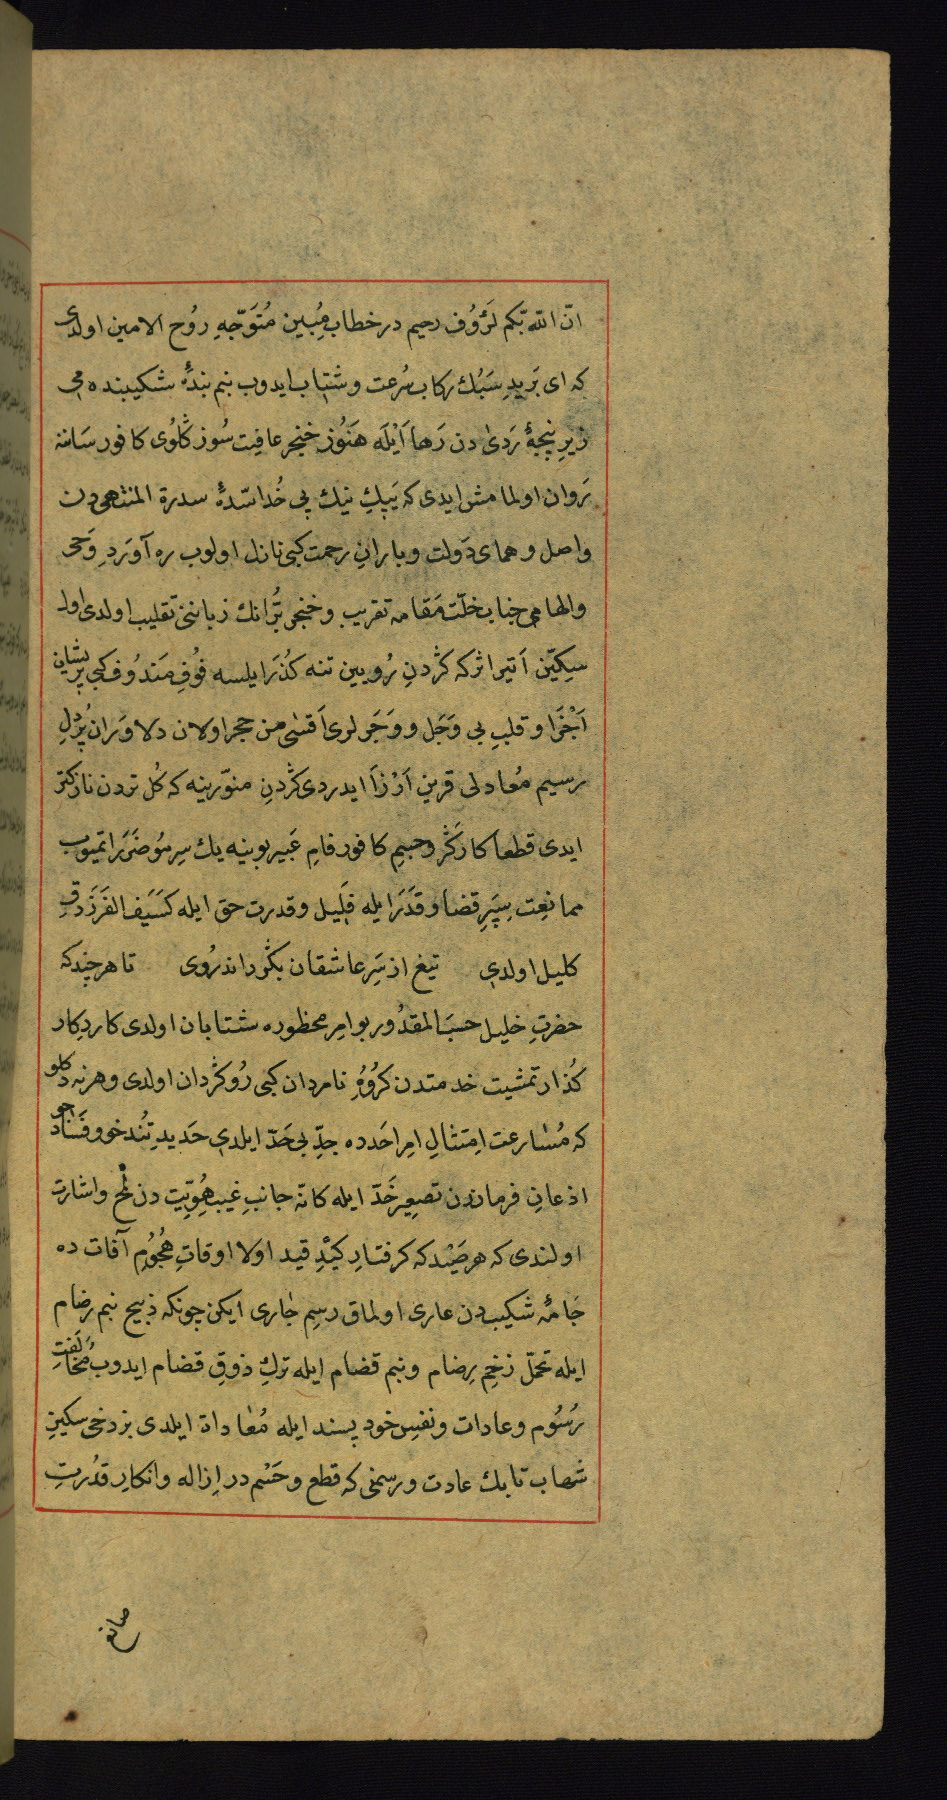 انّ اللّه بكم لَرَؤُف رحيم در خطاب مُبين مُتَوَجّهِ رُوح الامين اولدى
كه اى بَريدِ سَبُك ركاب سُرعت و شتاب ايدوب بنم بندۀ شكيبنده مى
زيرِ پنجۀ رَدىٰ دن رَها اَيْلَه هَنُوز خنجر عافيت سُوز گلُوى كافور سَاننه
رَوان اولمامش ايدى كه پَيكِ نيك پى خُدا سّدۀ سدرة المنتهى دن
واصل و هماى دَولت و بارانِ رحمت كبى نازل اولوب ره آورَدِ وَحى
والهامى جناب خلّت مَقامه تقريب و خنجر بُرّانك زباننى تقليب اولدى اول
سِكّين آتير اثر كه گردنِ رُويين تنه گُذَر ايلسه فُوفِ مَندُوف كبى پريشان
اَجْزَا و قلبِ بى وَجَل و وَجَرلرى اَقسٰى من حجر اولان دلاوَران پُردلِ
رسيم مُعادلى قرينِ اَرْزَا ايدردى گردنِ منوّرينه كه گل تردن نازكتر
ايدى قطعا كارگر و جسم كافور فامِ عَبير بوينيه يك سِرمو ضَرَر اتميوب
ممانعِت سِپَرِ قضا و قَدَر ايله فَليل و قدرت حق ايله كسَيف الفَرَزدَقِ
كليل اولدى تيغ از سَرِ عاشقان بگرداند رُوى تا هر چند كه
حضرتِ خليل حسبَ المقدُور بو امرِ محظوره شتابان اولدى كاردِ كار
گُذار تمشيت خدمتدن گروُهِ نامردان كبى رُوگردان اولدى و هر نه دكلو
كه مُسٰارعت اِمتثالِ امرِ احَدده جدِّ بى حَدّ ايلدى حَديدِ تُندخو و فَسَاد جو
اذعانِ فرماندن تصعيرِ خَدّ ايله كانّه جانبِ غيب هُوِيّت دن لمح و اشارت
اولندى كه هر صَيْد كه گرفتارِ كَيْدِ قيد اولا اوقاتِ هُجُومِ آفات ده
جَامۀ شكيب دن عارى اولماق رسمِ جٰارى ايكن چونكه ذبيح بنم رضام
ايله تحمّل زخمِ رِضام و بنم قضام ايله تركِ ذوقِ قضام ايدوب مُخالَفَتِ
رسُوم و عادات و نفسِ خود پسند ايله مُعٰاداة ايلدى بز دخى سكينِ
شهاب تابك عادت و رسمنى كه قطع و حَسْم در اِزاله و انكارِ قدُرتِ
صانع